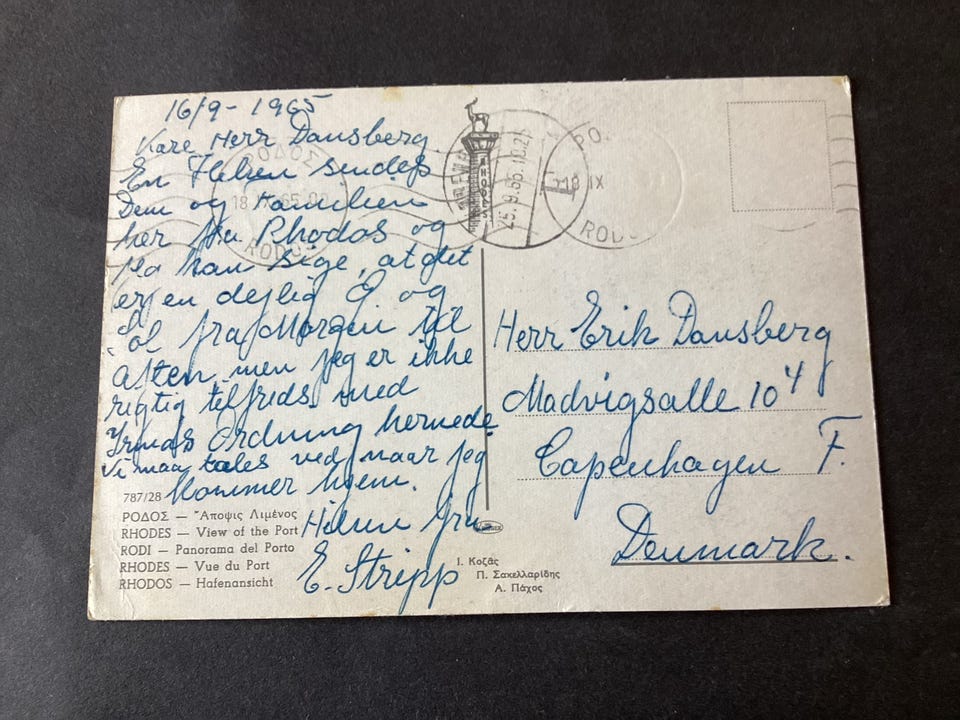 16/9 - 1965
Kære Herr Dansberg
En Hilsen sendes
Dem og Familien
her fra Rhodos og
jeg kan sige, at det
er en dejlig Ø og
Sol fra Morgen til
Aften, men jeg er ikke
rigtig tilfreds med
Ordning hernede
Vi maa tales ved, naar jeg
kommer hjem.
Hilsen fru
E. Stripp
787/28
ΡΟΔΟΣ — Ἄποψις Λιμένος
RHODES — View of the Port
RODI — Panorama del Porto
RHODES — Vue du Port
RHODOS — Hafenansicht
Ι. Κοζᾶς
Π. Σακελλαρίδης
Α. Πάχος
ΡΟΔΟΣ
RODOS
RHODES
25.9.65.
18 IX
Herr Erik Dansberg
Madvigsalle 10 4
Copenhagen F.
Denmark.